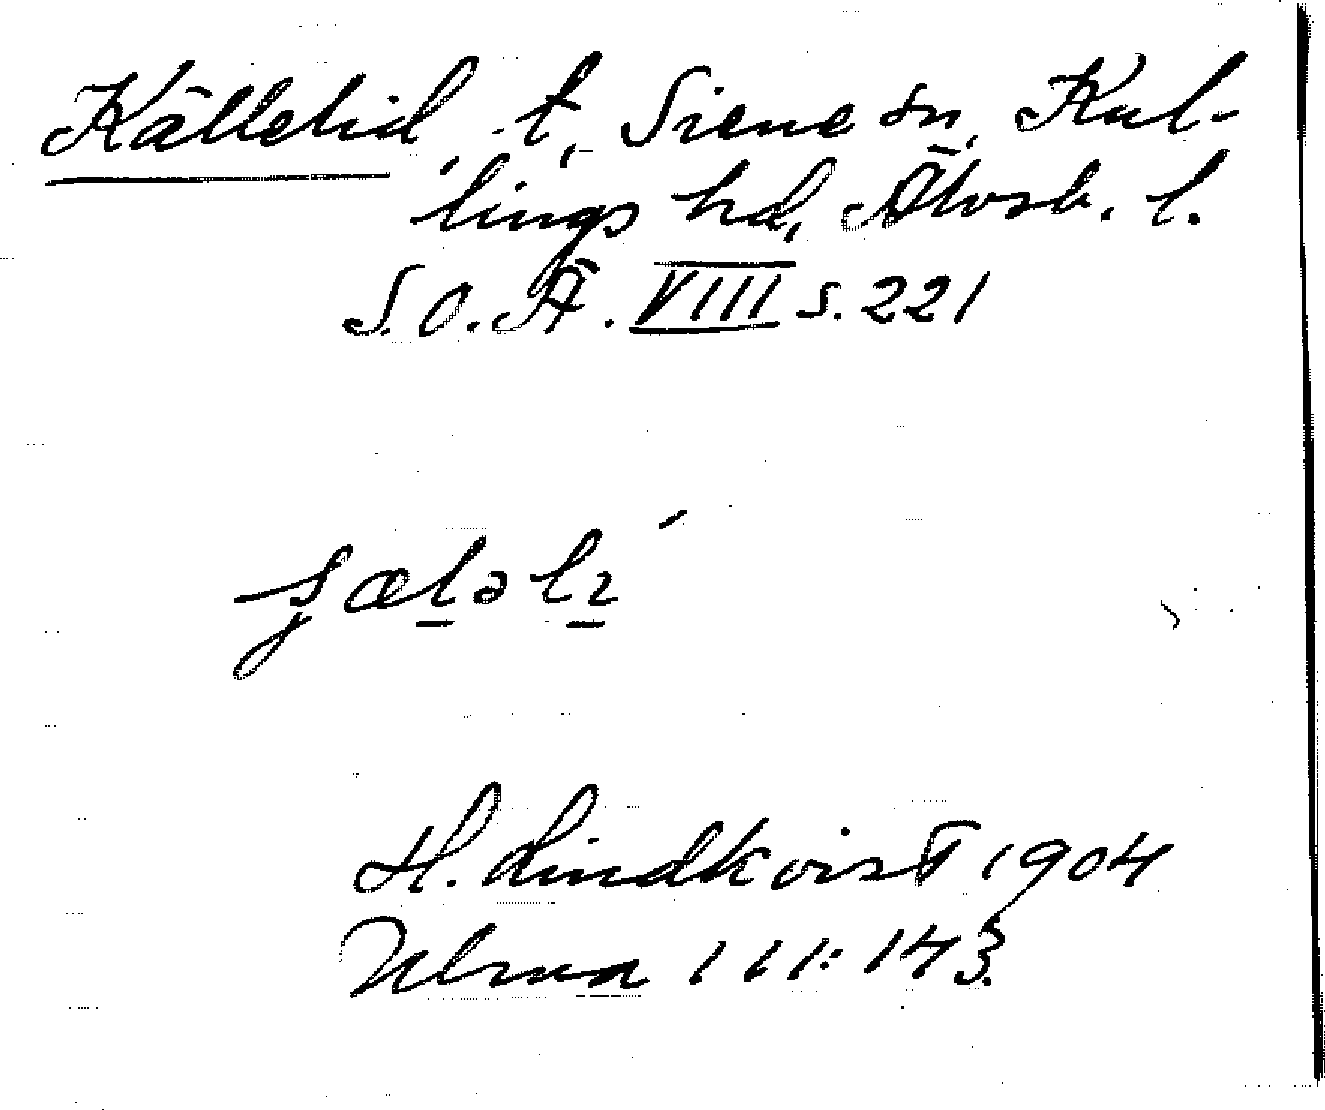 Källehid, t, Siene sn, Kul-
lings hd, Älvsb. l.
S.O.Ä. VIII s. 221
H. Lindkvist 1904
Ulma 111:143.